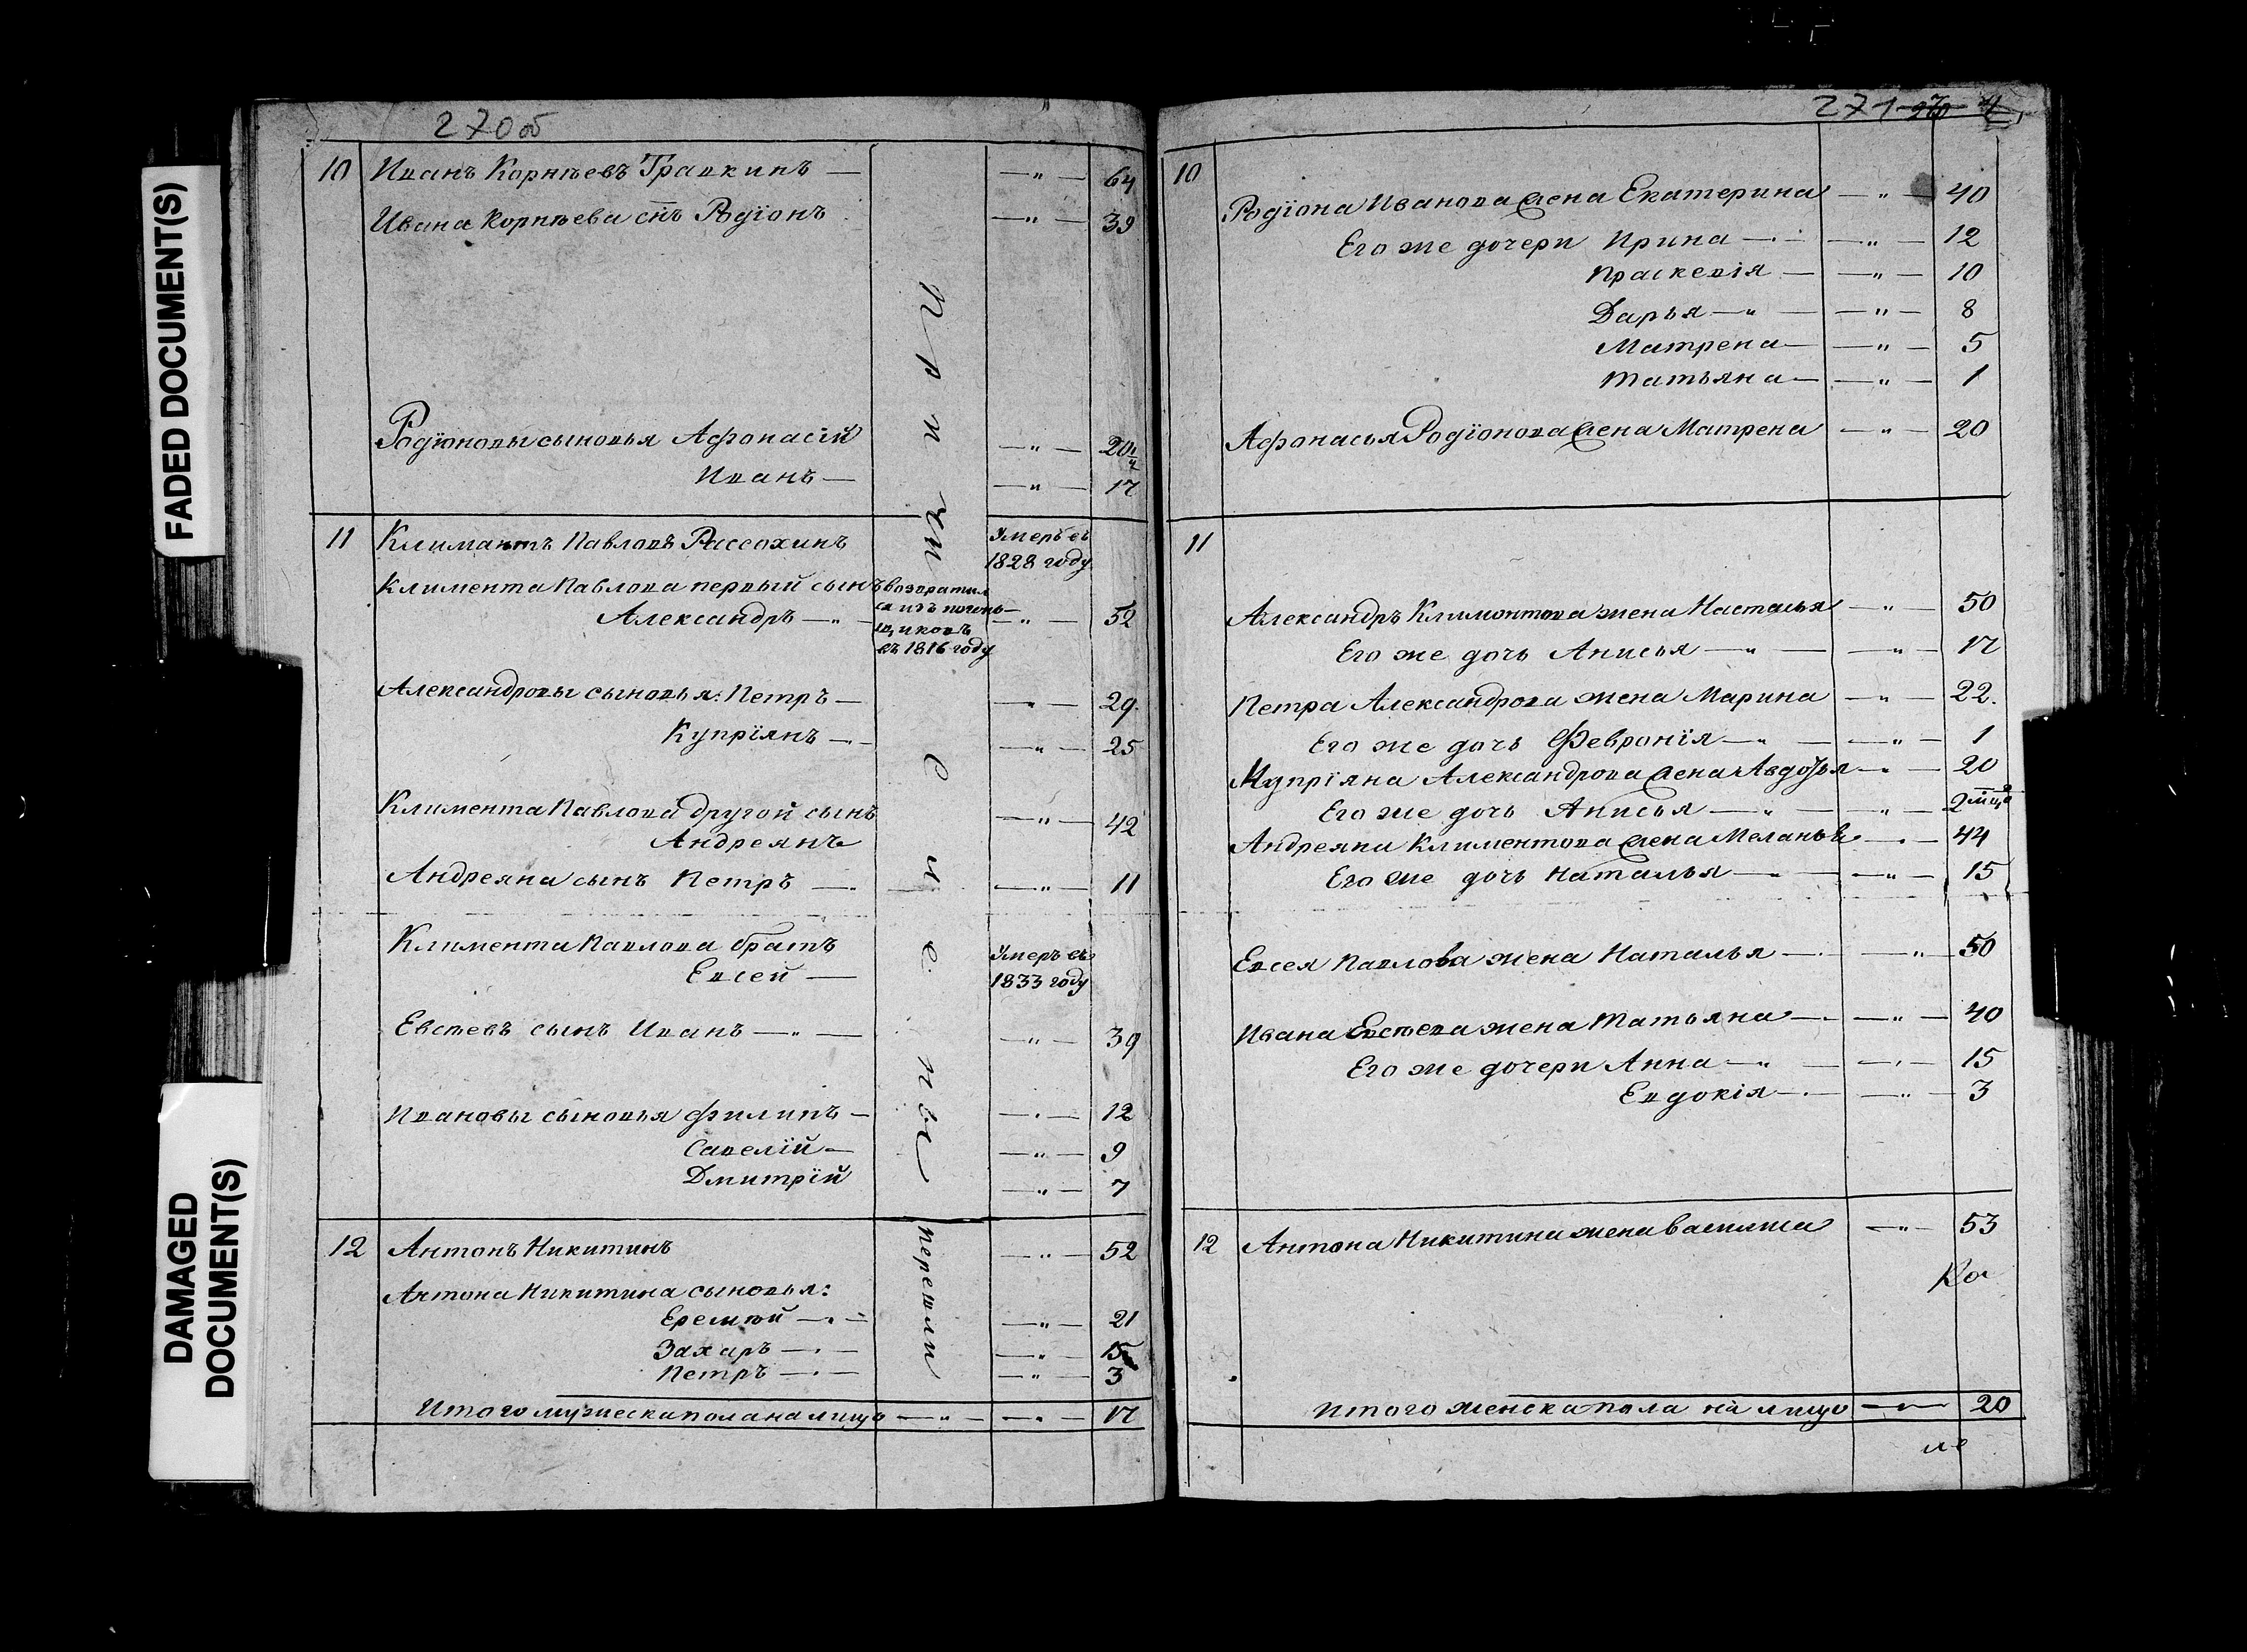 FADED DOCUMENT(S)
DAMAGED
DOCUMENT(S)
270об
10 Иванъ Корнѣевъ Травкинъ — — " — 64
Ивана Корнѣева снъ Родїонъ — " — 39
Родїоновы сыновья Афонасїй — " — 20
Иванъ — — " — 17
Причислены
11 Климантъ Павловъ Рассохинъ Умеръ въ
1828 году
Климента Павлова первый сынъ возвратил
ся изъ погонь-
Александръ — " — — " — 52
щиковъ
въ 1816 году
Александровы сыновья: Петръ — — " — 29.
Купрїянъ — — " — 25
Климента Павлова другой сынъ — " — 42
Андреянъ
Андреяна сынъ Петръ — — " — 11
Климента Павлова братъ Умеръ въ
Евсей — 1833 году
Евсѣевъ сынъ Иванъ — " — — " — 39
Ивановы сыновья Филипъ — — " — 12
Савелїй — — " — 9
Дмитрїй — " — 7
12 Антонъ Никитинъ — " — 52
перешли
Антона Никитина сыновья:
Еремѣй — " — — " — 21
Захаръ — " — — " — 15
Петръ — " — — " — 3
Итого мужеска пола на лицо — " — — " — 17
271 270
10
Родїона Иванова жена Екатерина — " — 40
Его же дочери Ирина — " — — " — 12
Праскевія — — " — 10
Дарья — " — — " — 8
Матрена — — " — 5
Татьяна — — " — 1
Афонасья Родїонова жена Матрена — " — 20
11
Александръ Климонтова жена Настасья — " — 50
Его же дочь Анисья — " — — " — 17
Петра Александрова жена Марина — " — 22.
Его же дочь Февронїя — " — — " — 1
Купрїяна Александрова жена Авдотья — " — 20
Его же дочь Анисья — " — — " — 2 мца
Андреяна Климентова жена Меланья — " — 44
Его же дочь Наталья — " — — " — 15
Евсея Павлова жена Наталья — " — 50
Ивана Евсѣева жена Татьяна — — " — 40
Его же дочери Анна — " — — " — 15
Евдокія — — " — 3
12 Антона Никитина жена Василиса — " — 53
Ко
Итого женска пола на лицо — " — 20